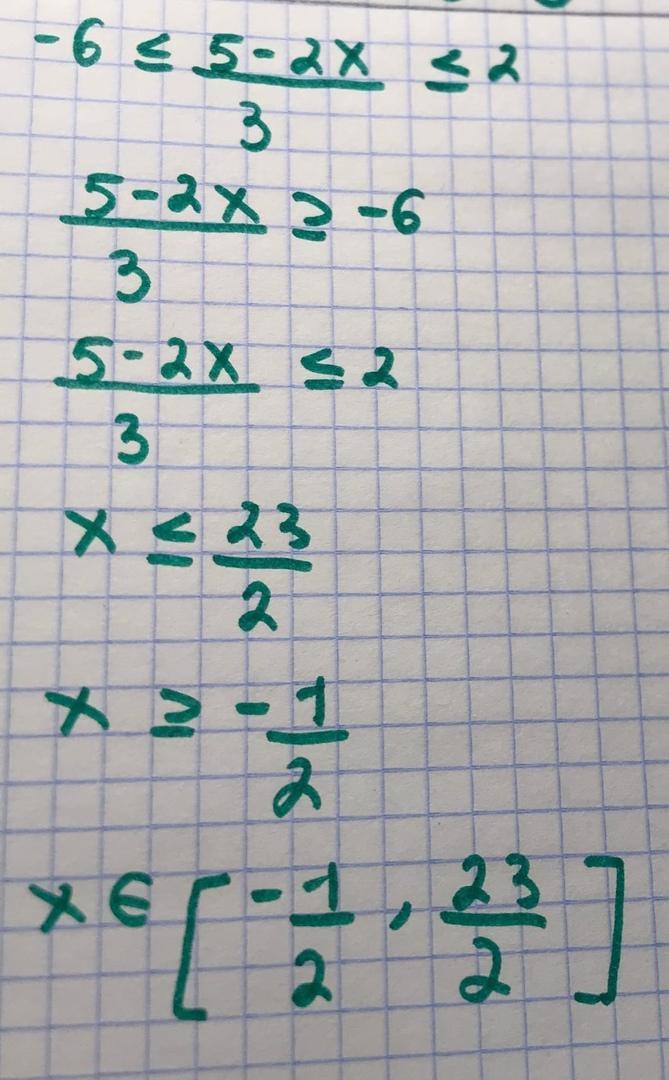 -6 ≤ (5-2x)/3 ≤ 2
(5-2x)/3 ≥ -6
(5-2x)/3 ≤ 2
x ≤ 23/2
x ≥ -1/2
x ∈ [-1/2, 23/2]